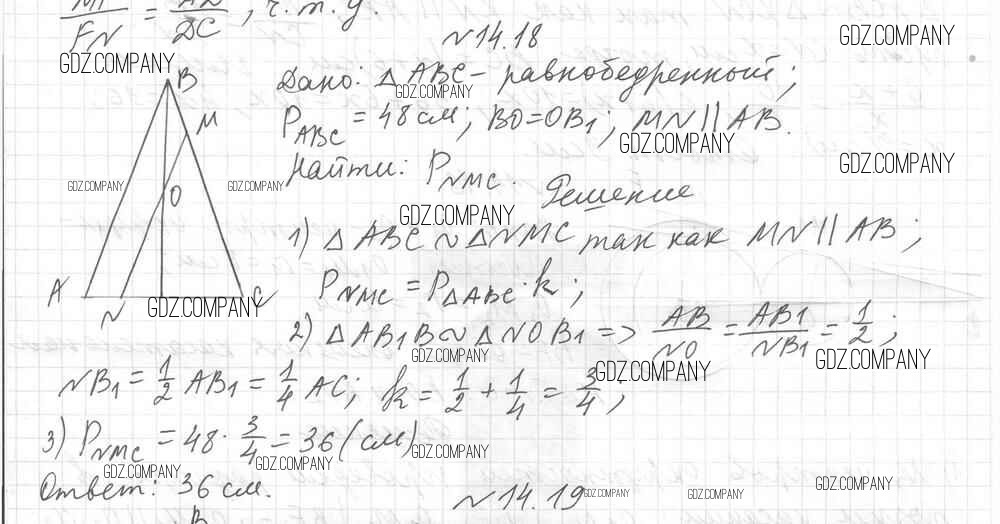 MF/FN = AD/DC, ч.т.д.
N14.18
Дано: △ABC - равнобедренный;
P_ABC = 48 см; BO=OB₁; MN || AB.
Найти: P_NMC.
Решение
1) △ABC ~ △NMC так как MN || AB;
P_NMC = P_△ABC · k;
2) △AB₁B ~ △NOB₁ => AB/NO = AB1/NB₁ = 1/2;
NB₁ = 1/2 AB₁ = 1/4 AC; k = 1/2 + 1/4 = 3/4;
3) P_NMC = 48 · 3/4 = 36 (см)
Ответ: 36 см.
N14.19
B
B
M
O
A
N
C
GDZ.COMPANY
GDZ.COMPANY
GDZ.COMPANY
GDZ.COMPANY
GDZ.COMPANY
GDZ.COMPANY
GDZ.COMPANY
GDZ.COMPANY
GDZ.COMPANY
GDZ.COMPANY
GDZ.COMPANY
GDZ.COMPANY
GDZ.COMPANY
GDZ.COMPANY
GDZ.COMPANY
GDZ.COMPANY
GDZ.COMPANY
GDZ.COMPANY